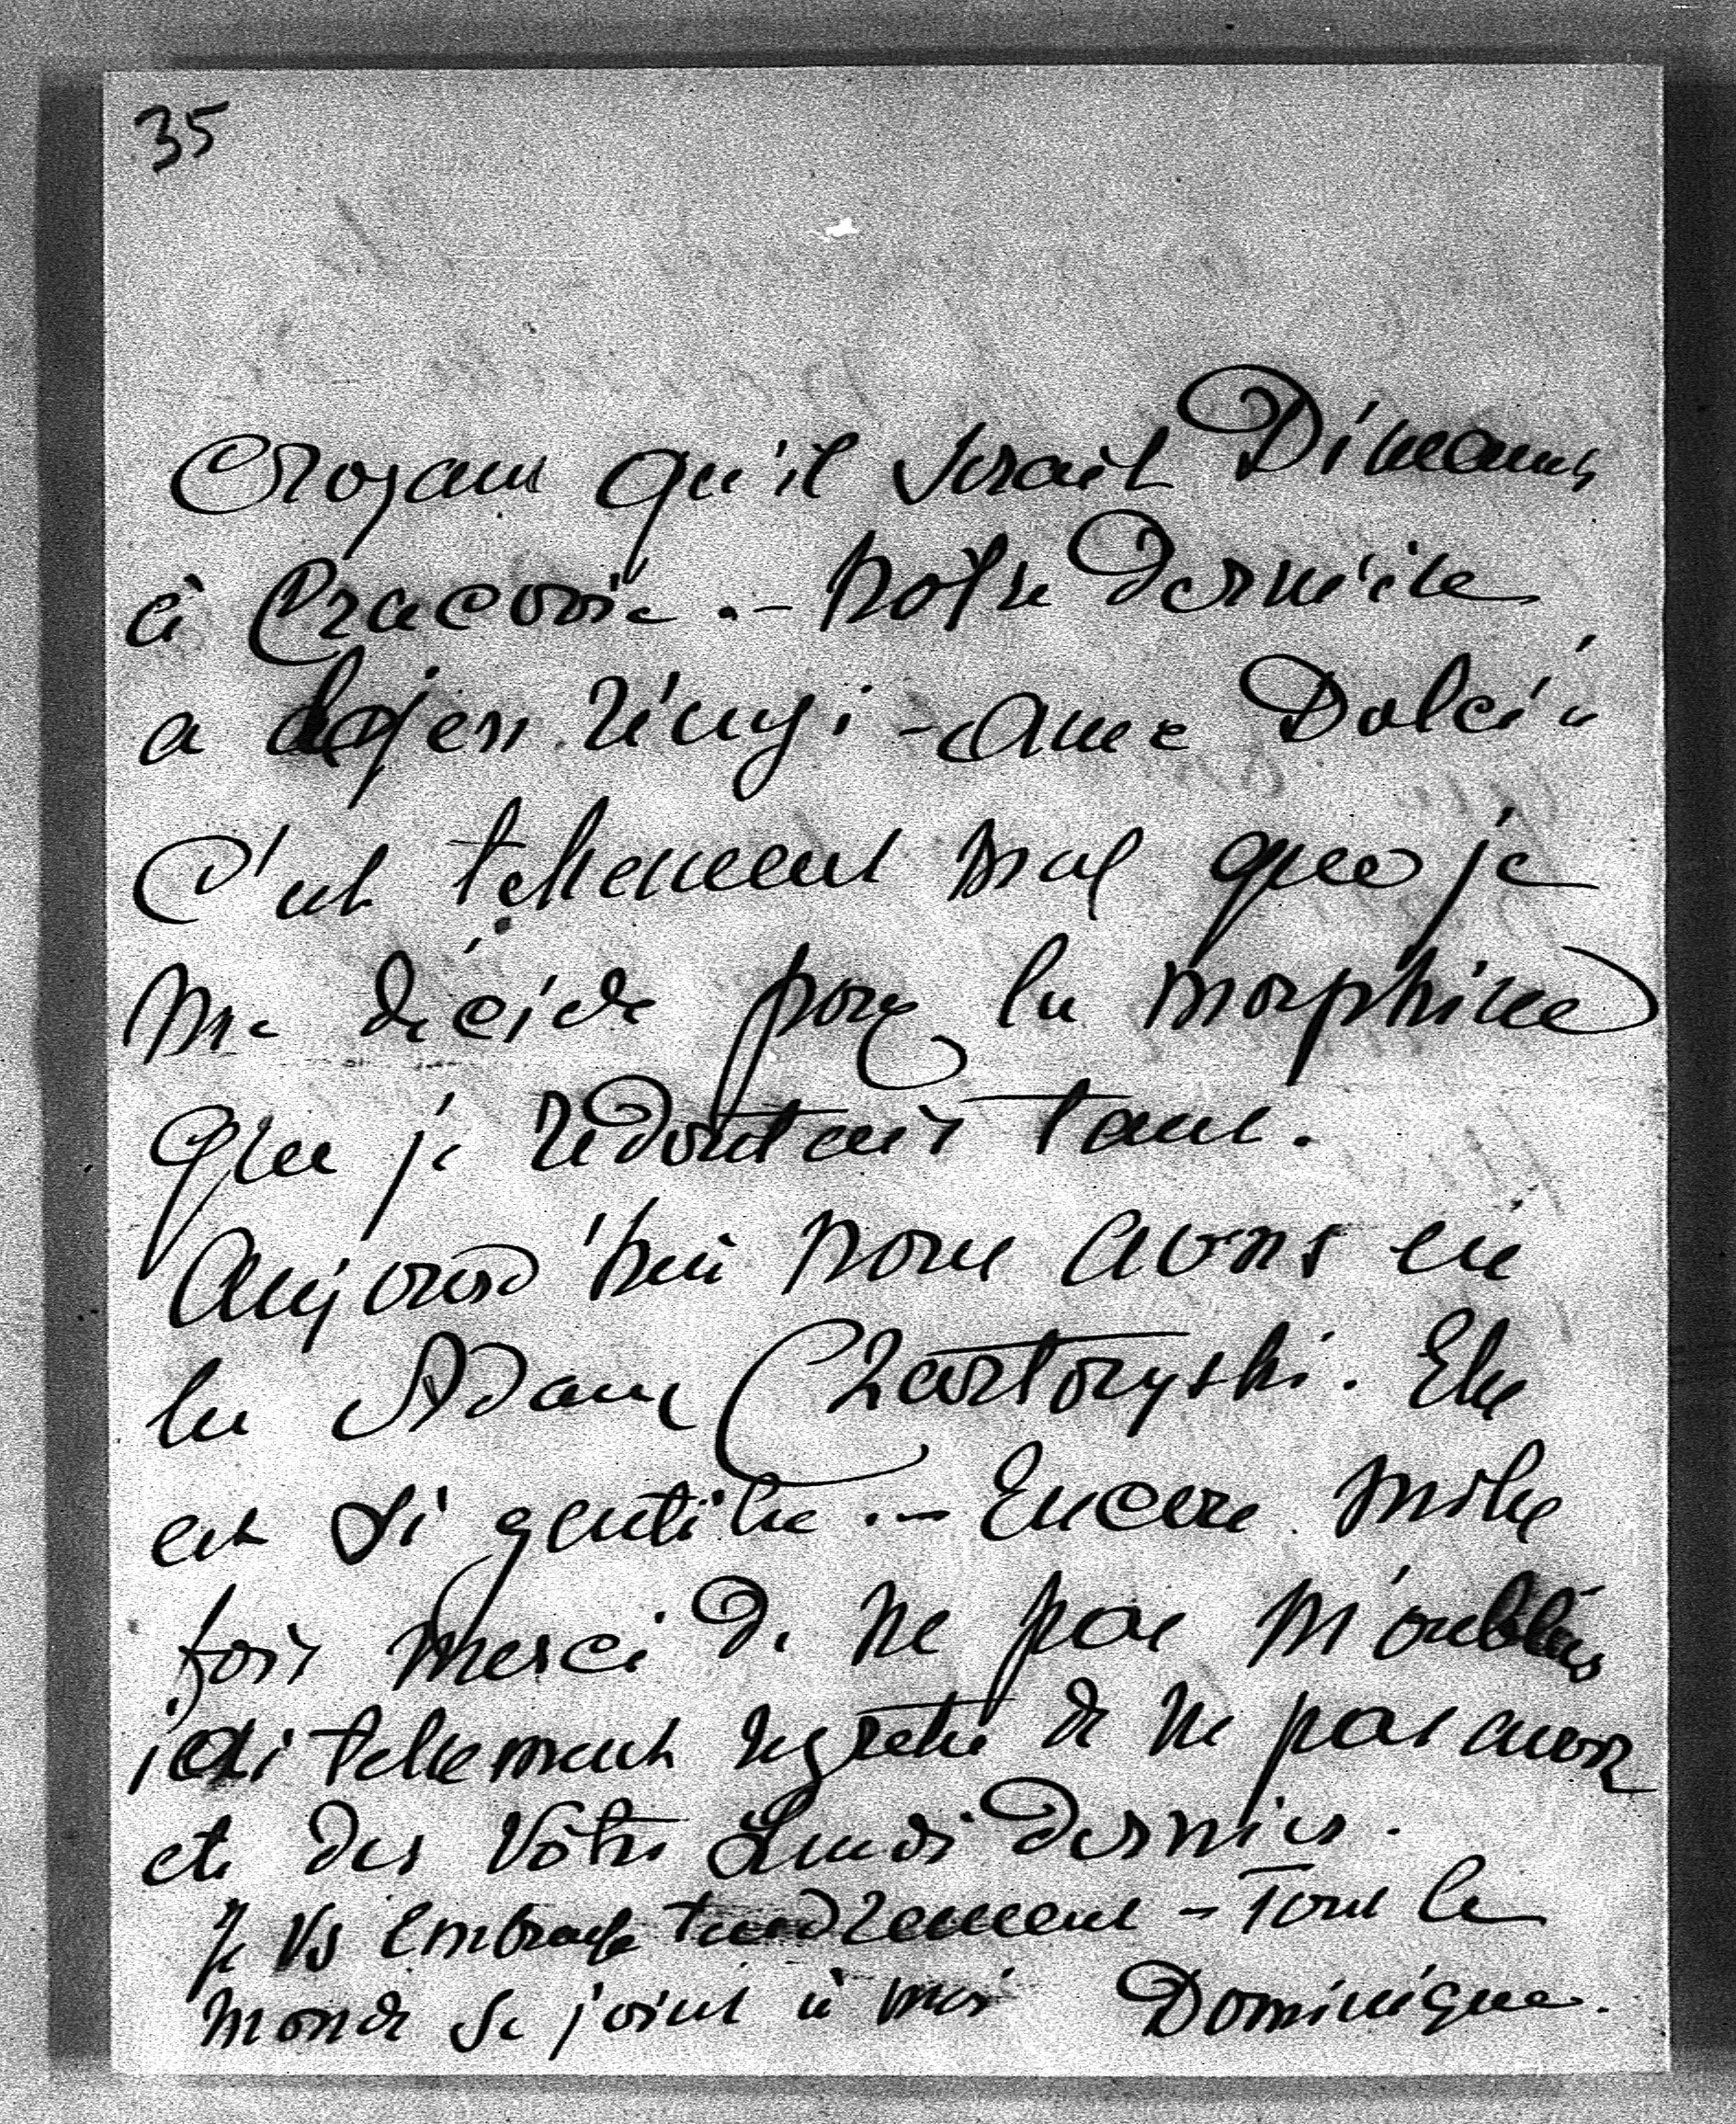 35
Croyant qu'il serait Dimanche
à Cracovie.- Notre Dernière
a réagi - avec
C'est tellement mal que je
me décide pour la morphine
que je redoutais tant.
Aujourd'hui nous avons eu
la Adam Czartoryski. Elle
est si gentille.- Encore mille
fois merci de ne pas m'oublier
j'ai tellement regretté de ne pas avoir
été des Vôtres Lundi Dernier.
Je Vs embrasse tendrement - Tout le
monde se joint à moi Dominique.